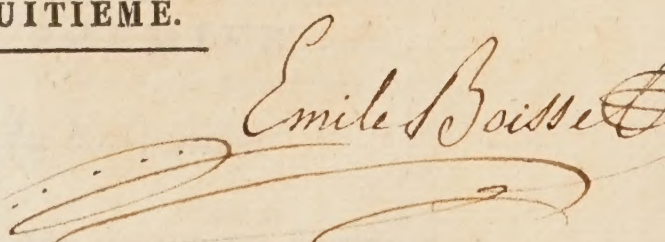 UITIEME.
Emile Boisse